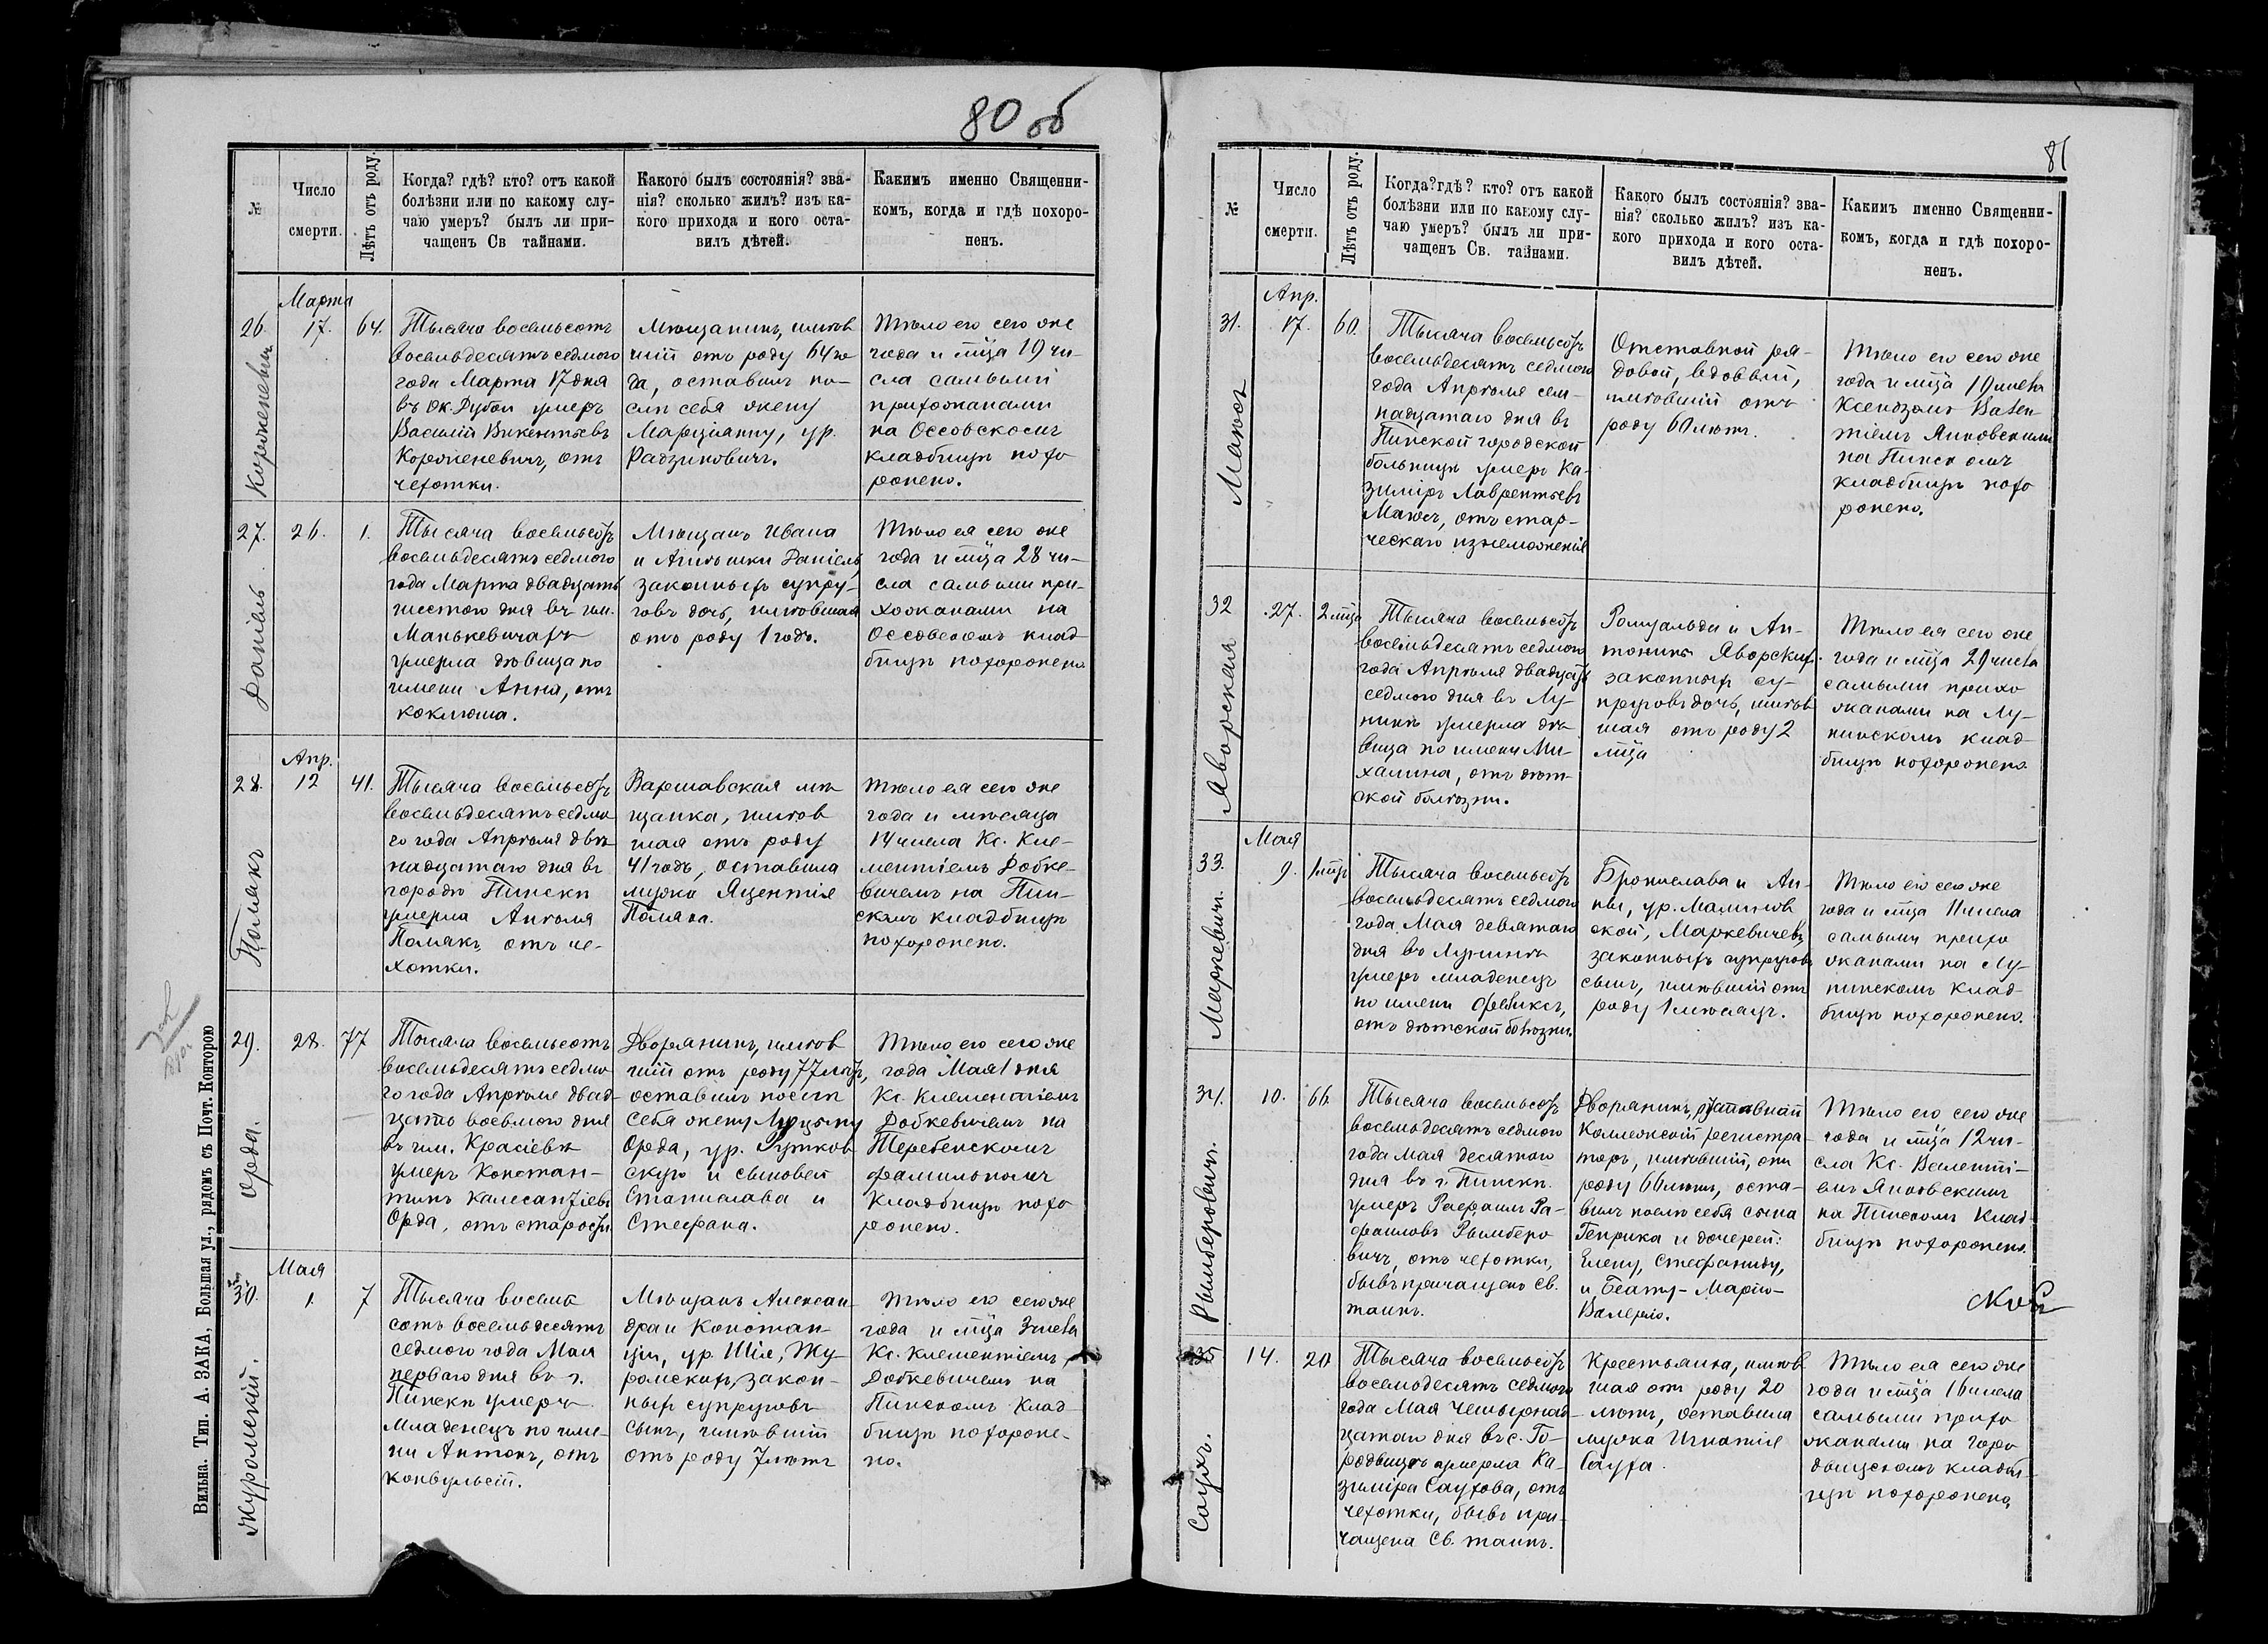 80 об
№
Число
смерти.
Лѣтъ отъ роду.
Когда? гдѣ? кто? отъ какой
болѣзни или по какому слу-
чаю умеръ? былъ ли при-
чащенъ Св тайнами.
Какого былъ состоянія? зва-
нія? сколько жилъ? изъ ка-
кого прихода и кого оста-
вилъ дѣтей.
Какимъ именно Священни-
комъ, когда и гдѣ похоро-
ненъ.
Марта
26.
Короженевичъ
17.
64.
Тысяча восемьсотъ
восемьдесятъ седмого
года Марта 17 дня
въ ок. Дубои умеръ
Василій Викентьевъ
Короженевичъ, отъ
чехотки.
Мѣщанинъ, имѣв
шій отъ роду 64 го
да, оставилъ по-
слѣ себя жену
Марціанну, ур.
Радзиковичъ.
Тѣло его сего же
года и мца 19 чи-
сла самыми
прихожанами
на Оссовскомъ
кладбищѣ похо
ронено.
27.
Даніель
26.
1.
Тысяча восемьсотъ
восемьдесятъ седмого
года Марта двадцать
шестого дня въ им.
Манькевичахъ
умерла дѣвица по
имени Анна, отъ
коклюша.
Мѣщанъ Ивана
и Анѣльки Даніель
законныхъ супру-
говъ дочь, имѣвшая
отъ роду 1 годъ.
Тѣло ея сего же
года и мца 28 чи-
сла самыми при-
хожанами на
Оссовскомъ клад
бищѣ похоронено
Апр.
28.
Полякъ
12
41.
Тысяча восемьсотъ
восемьдесятъ седмо
го года Апрѣля двѣ
надцатаго дня въ
городѣ Пинскѣ
умерла Анѣля
Полякъ, отъ че-
хотки.
Варшавская мѣ
щанка, имѣв
шая отъ роду
41 годъ, оставила
мужа Яцентія
Поляка.
Тѣло ея сего же
года и мѣсяца
14 числа Кс. Кле-
ментіемъ Добке-
вичемъ на Пин-
скомъ кладбищѣ
похоронено.
29.
Орда.
28.
77
Тысяча восемьсотъ
восемьдесятъ седмо
го года Апрѣля двад-
цать восьмого дня
въ им. Красіевѣ
умеръ Констан-
тинъ Калесантіевъ
Орда, отъ старости.
Дворянинъ, имѣв
шій отъ роду 77 лѣтъ,
оставилъ послѣ
себя жену Люцыну
Орда, ур. Рутков
скую и сыновей
Станислава и
Стефана.
Тѣло его сего же
года Мая 1 дня
Кс. Клементіемъ
Добкевичемъ на
Теребенскомъ
фамильномъ
кладбищѣ похо
ронено.
Мая
30.
Журомскій.
1.
7
Тысяча восемь
сотъ восемьдесятъ
седмого года Мая
перваго дня въ г.
Пинскѣ умеръ
младенецъ по име-
ни Антонъ, отъ
конвульсій.
Мѣщанъ Алексан-
дра и Констан-
ціи, ур. Шіе, Жу-
ромскихъ, закон-
ныхъ супруговъ
сынъ, имѣвшій
отъ роду 7 лѣтъ
Тѣло его сего же
года и мца 3 числа
Кс. Клементіемъ
Добкевичемъ на
Пинскомъ клад-
бищѣ похороне-
но.
Вильна. Тип. А. ЗАКА, Большая ул., рядомъ съ Почт. Конторою
81
№
Число
смерти.
Лѣтъ отъ роду.
Когда? гдѣ? кто? отъ какой
болѣзни или по какому слу-
чаю умеръ? былъ ли при-
чащенъ Св. тайнами.
Какого былъ состоянія? зва-
нія? сколько жилъ? изъ ка-
кого прихода и кого оста-
вилъ дѣтей.
Какимъ именно Священни-
комъ, когда и гдѣ похоро-
ненъ.
Апр.
31.
Маюсъ
17.
60.
Тысяча восемьсотъ
восемьдесятъ седмого
года Апрѣля сем-
надцатаго дня въ
Пинской городской
больницѣ умеръ Ка-
зиміръ Лаврентьевъ
Маюсъ, отъ стар-
ческаго изнеможенія
Отставной ря-
довой, вдовый,
имѣвшій отъ
роду 60 лѣтъ.
Тѣло его сего же
года и мца 19 числа
Ксендзомъ Вален-
тіемъ Янковскимъ
на Пинскомъ
кладбищѣ похо
ронено.
32
Яворская
27.
2 мца
Тысяча восемьсотъ
восемьдесятъ седмого
года Апрѣля двадцать
седмого дня въ Лу-
нинѣ умерла дѣ
вица по имени Ми-
халина, отъ дѣт-
ской болѣзни.
Ромуальда и Ан-
тонины Яворскихъ
законныхъ су-
пруговъ дочь, имѣв
шая отъ роду 2
мца
Тѣло ея сего же
года и мца 29 числа
самыми прихо
жанами на Лу-
нинскомъ клад-
бищѣ похоронено.
Мая
33.
Маркевичъ.
9.
1 мцъ
Тысяча восемьсотъ
восемьдесятъ седмого
года Мая девятаго
дня въ Лунинѣ
умеръ младенецъ
по имени Феликсъ,
отъ дѣтской болѣзни.
Бронислава и Ан-
ны, ур. Малинов
ской, Маркевичевъ,
законныхъ супруговъ
сынъ, имѣвшій отъ
роду 1 мѣсяцъ.
Тѣло его сего же
года и мца 11 числа
самыми прихо
жанами на Лу-
нинскомъ клад-
бищѣ похоронено.
34.
Рымберовичъ.
10.
66
Тысяча восемьсотъ
восемьдесятъ седмого
года Мая десятаго
дня въ г. Пинскѣ
умеръ Рафаилъ Ра-
фаиловъ Рымберо
вичъ, отъ чехотки,
бывъ причащенъ Св.
таинъ.
Дворянинъ, отставной
Коллежскій регистра-
торъ, имѣвшій отъ
роду 66 лѣтъ, оста-
вилъ послѣ себя сына
Генрика и дочерей:
Елену, Стефанию,
и Беату-Марію-
Валерію.
Тѣло его сего же
года и мца 12 чи-
сла Кс. Валенті-
емъ Янковскимъ
на Пинскомъ клад-
бищѣ похоронено.
35
Саухъ.
14.
20
Тысяча восемьсотъ
восемьдесятъ седмого
года Мая четырнад-
цатаго дня въ с. Го-
родыщѣ умерла Ка-
зиміра Саухова, отъ
чехотки, бывъ при-
чащена Св. таинъ.
Крестьянка, имѣв
шая отъ роду 20
лѣтъ, оставила
мужа Игнатія
Сауха.
Тѣло ея сего же
года и мца 16 числа
самыми прихо
жанами на Горо
дыщскомъ кладби-
щѣ похоронено.